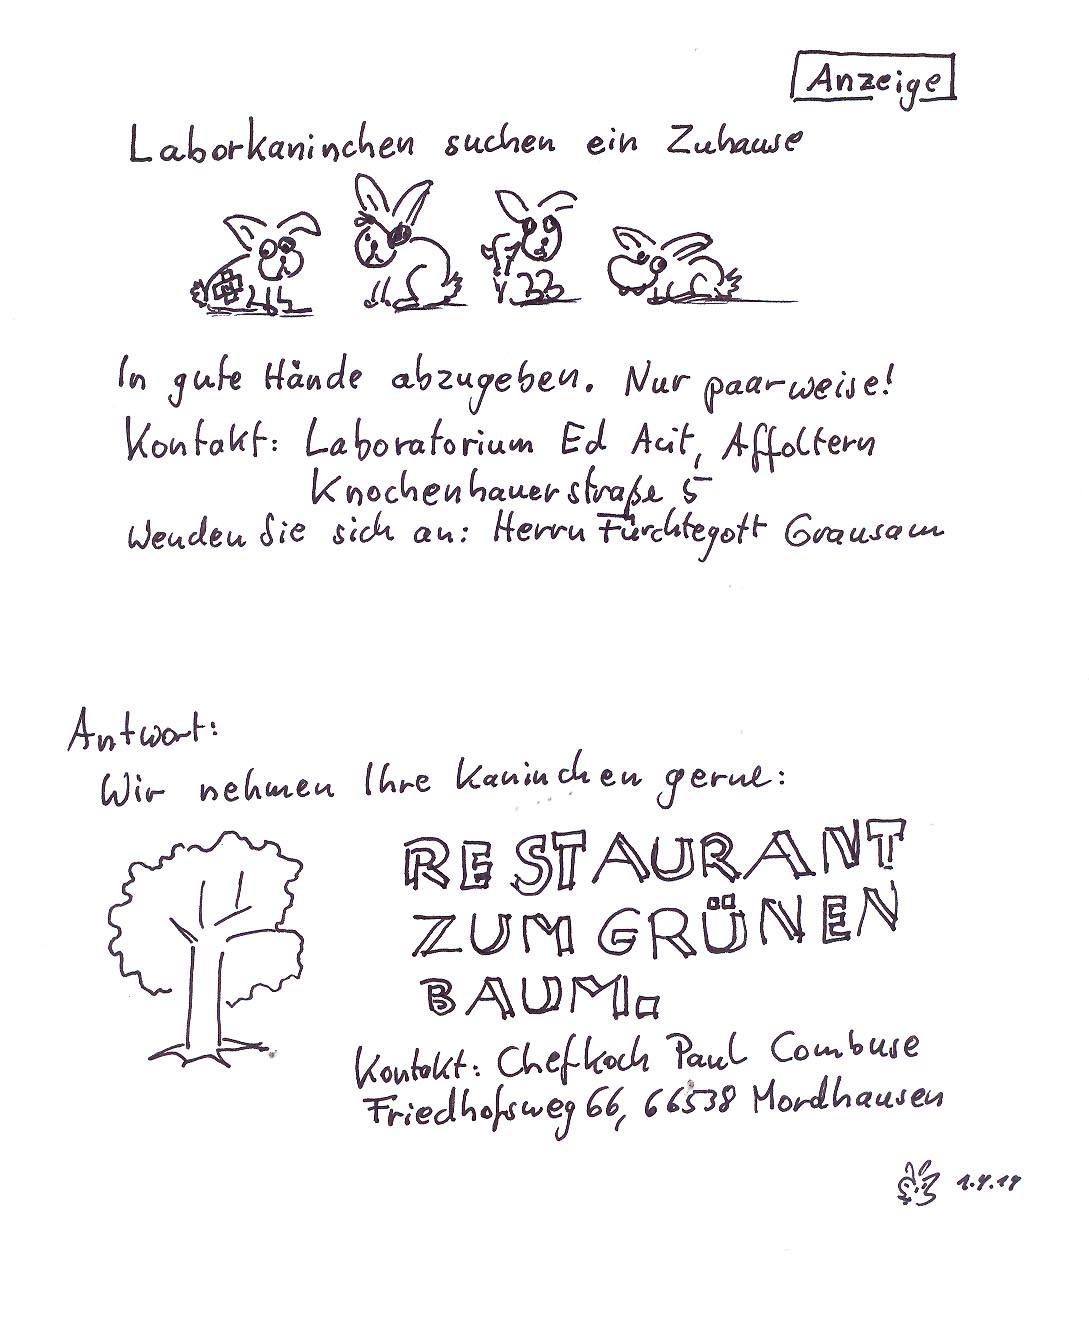 Anzeige
Laborkaninchen suchen ein Zuhause
In gute Hände abzugeben. Nur paarweise!
Kontakt: Laboratorium Ed Acit, Affoltern
Knochenhauerstraße 5
Wenden Sie sich an: Herrn Fürchtegott Grausam
Antwort:
Wir nehmen Ihre Kaninchen gerne:
RESTAURANT
ZUM GRÜNEN
BAUM.
Kontakt: Chefkoch Paul Combuse
Friedhofsweg 66, 66538 Mordhausen
1.4.14